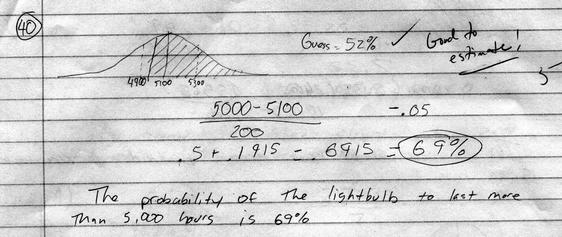 40
Guess = 52% ✓ Good to
estimate!
4900 5100 5300
5000-5100 -.05
200
.5 + .1915 = .6915 = 69%
The probability of the lightbulb to last more
than 5,000 hours is 69%